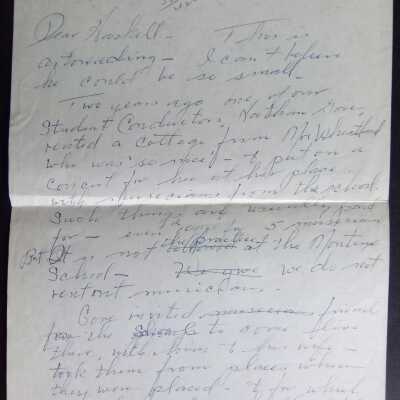 Dear Haskell - This is
astounding - I can't believe
he could be so small -
Two years ago one of our
Student Conductors,
rented a cottage from Mr
who was so nice - & put on a
concert for her at her place
with musicians from the school.
Such things are usually paid
for - even 5 musicians
But It is not the practice at the
School - we do not
rent out musicians.
Gore invited friend
from the to come
there, with -
took them from places where
they were placed - & for which